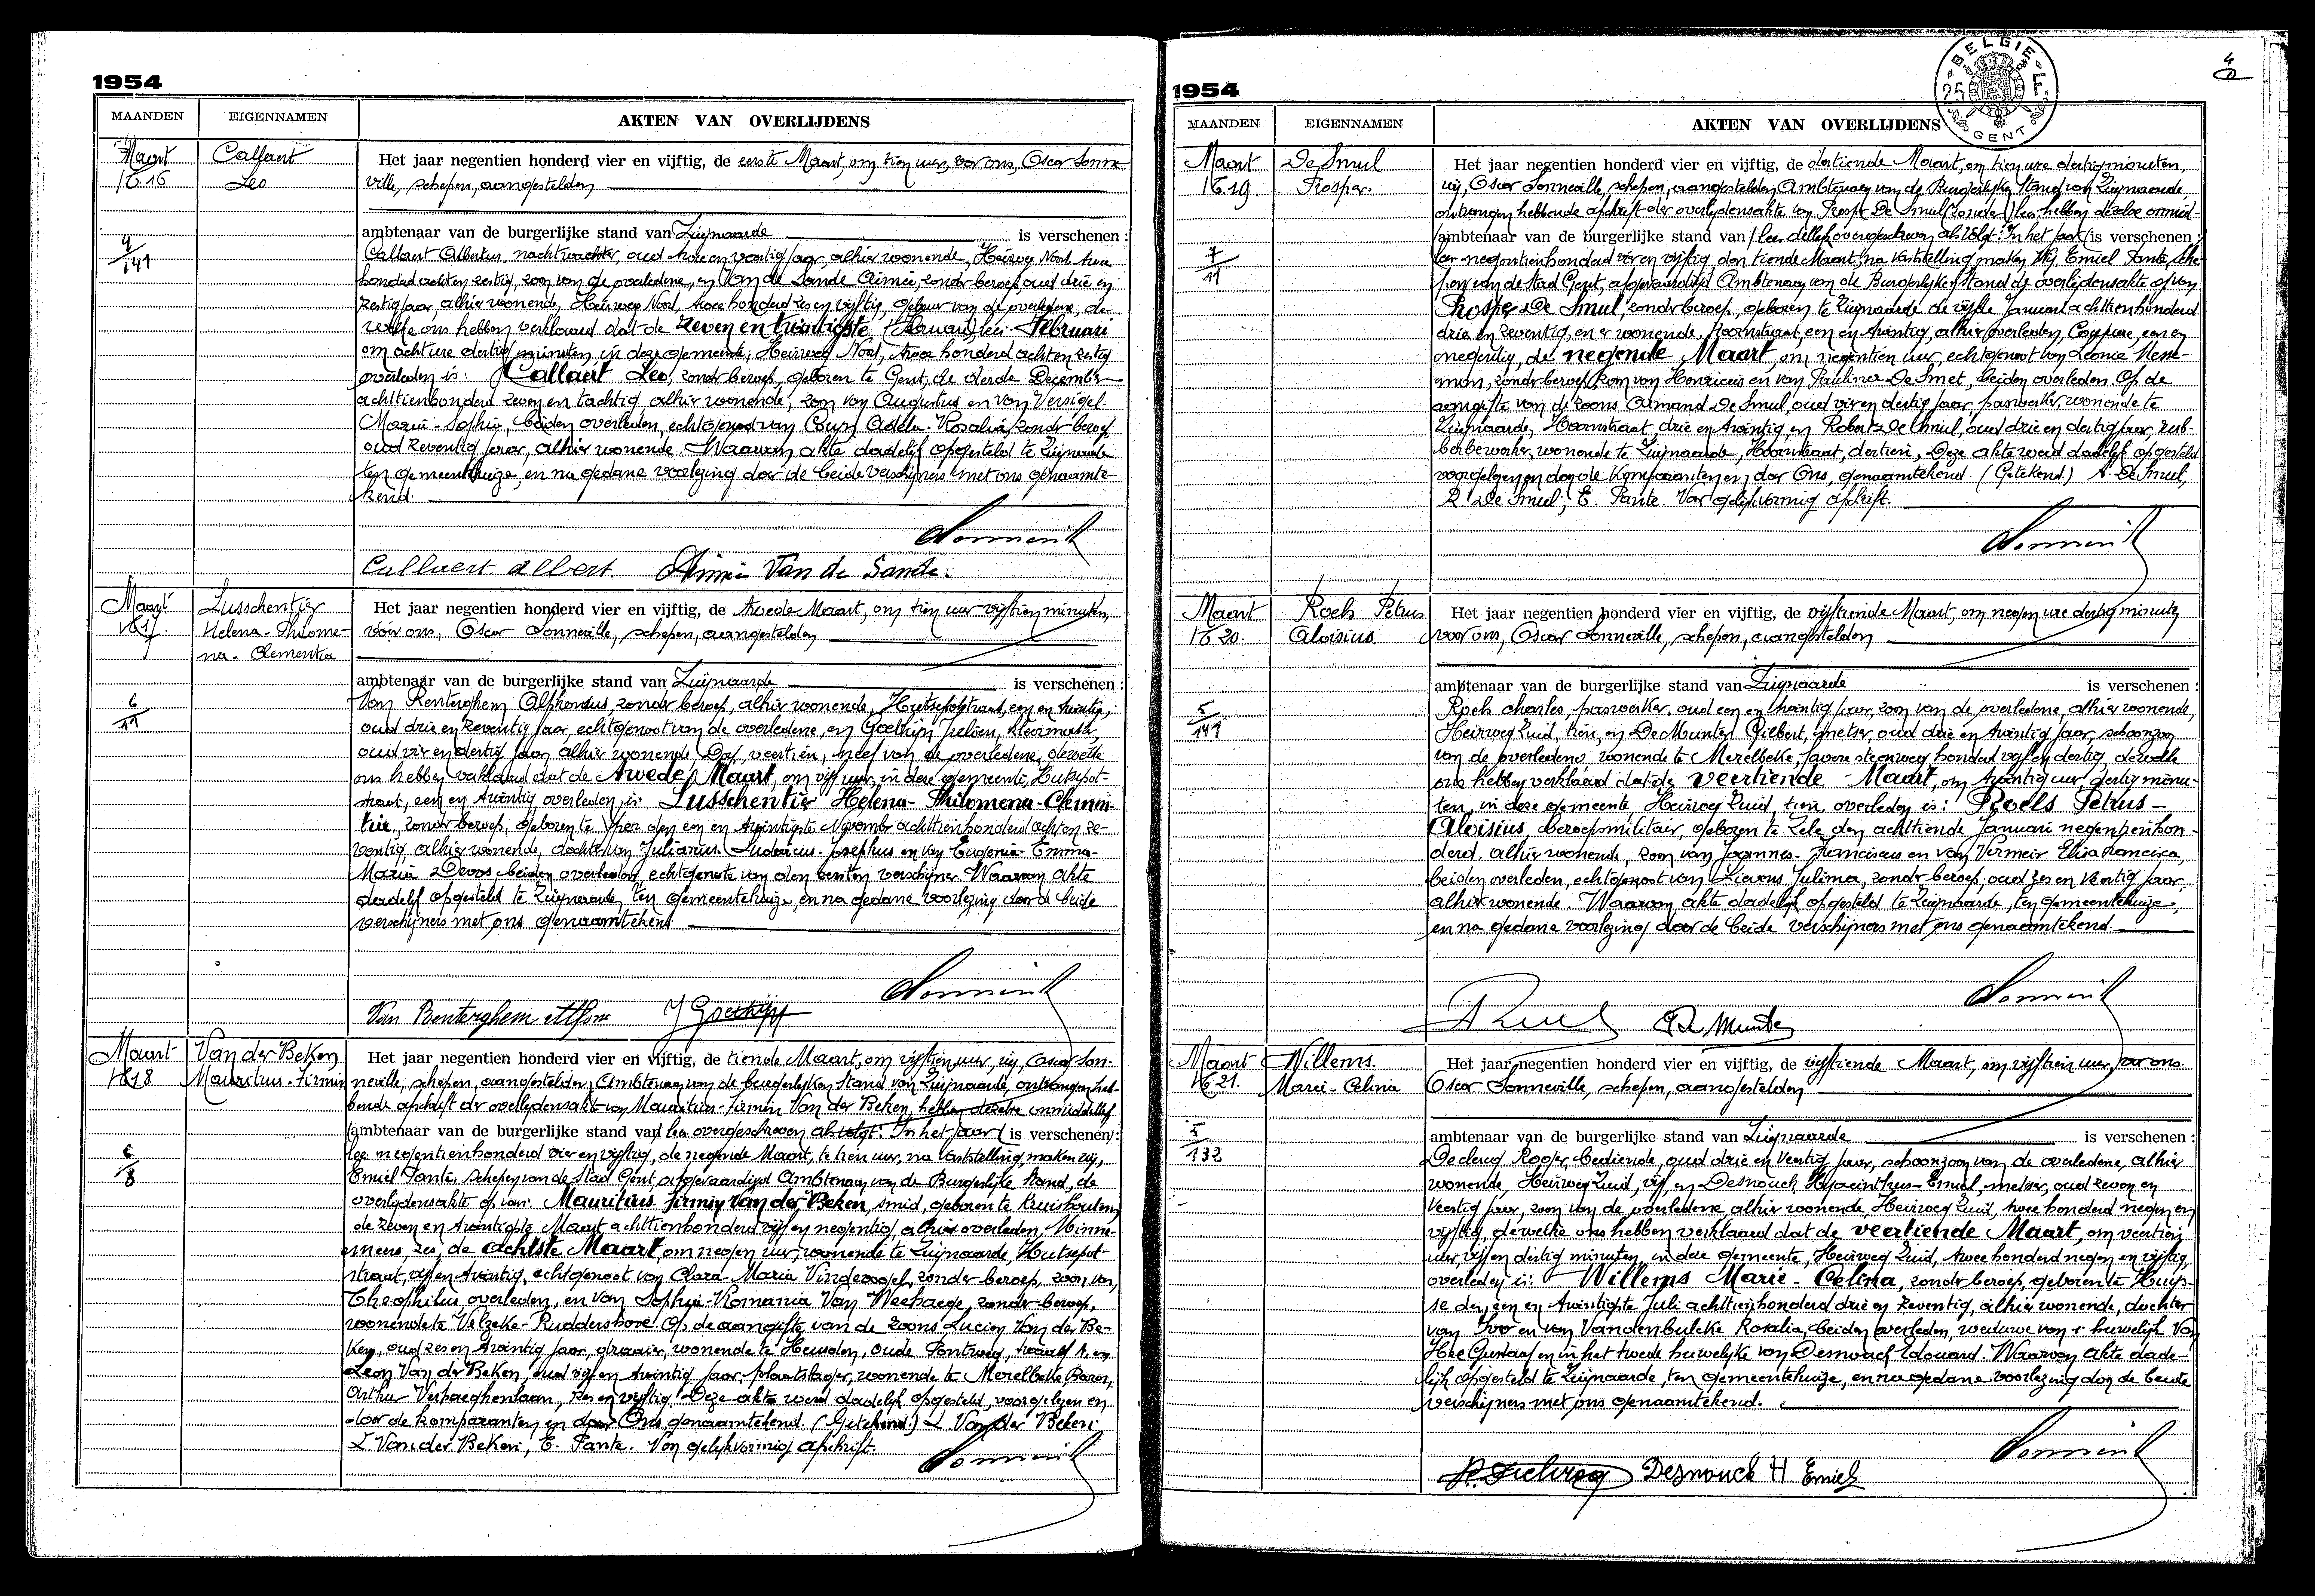 1954
MAANDEN EIGENNAMEN AKTEN VAN OVERLIJDENS
Maart Callaert
N. 16 Leo
Het jaar negentien honderd vier en vijftig, de eerste Maart, om tien uur, voor ons, Oscar Sonne-
ville, schepen, aangestelden
ambtenaar van de burgerlijke stand van Zwijnaarde is verschenen :
Callaert Albertus, nachtwachter, oud twee en veertig jaar, alhier wonende, Heirweg Noord, twee
honderd acht en zestig, zoon van de overledene, en Van de Sande Aimée, zonder beroep, oud drie en
zestig jaar, alhier wonende, Heirweg Noord, twee honderd zes en vijftig, gebuur van de overledene, de-
welke ons hebben verklaard dat de zeven en twintigste Februari
om acht ure dertig minuten in deze gemeente, Heirweg Noord, twee honderd acht en zestig
overleden is: Callaert Leo, zonder beroep, geboren te Gent, de derde December
achttienhonderd zeven en tachtig, alhier wonende, zoon van Augustus en van Versigel
Marie-Sophie, beiden overleden, echtgenoot van Adela-Rosalia, zonder beroep
oud zeventig jaar, alhier wonende. Waarvan akte dadelijk opgesteld te Zwijnaarde
ten gemeentehuize, en na gedane voorlezing door de beide verschijners met ons genaamte-
kend.
Callaert albert. Aimée Van de Sande.
Maart Lusschentier
N. 17 Helena-Philome-
na-Clementia
Het jaar negentien honderd vier en vijftig, de tweede Maart, om tien uur vijftien minuten,
vóór ons, Oscar Sonneville, schepen, aangestelden
ambtenaar van de burgerlijke stand van Zwijnaarde is verschenen :
Van Renterghem Alphonsus, zonder beroep, alhier wonende, Hutsepotstraat, een en twintig,
oud drie en zeventig jaar, echtgenoot van de overledene, en Goethijn
oud vier en dertig jaar, alhier wonende, veertien, neef van de overledene, dewelke
ons hebben verklaard dat de tweede Maart, om vijf uur, in deze gemeente, Hutsepot-
straat, een en twintig overleden is: Lusschentier Helena-Philomena-Clemen-
tia, zonder beroep, geboren te Yper den een en twintigste November achttienhonderd acht en ze-
ventig, alhier wonende, dochter van Julianus-Ludovicus-Josephus en van Eugenia-Emma-
Maria Devos beiden overleden, echtgenote van den eersten verschijner. Waarvan akte
dadelijk opgesteld te Zwijnaarde, ten gemeentehuize, en na gedane voorlezing door de beide
verschijners met ons genaamtekend
Van Renterghem Alfons J Goethijn
Maart Van der Beken
N. 18 Mauritius-Firmin
Het jaar negentien honderd vier en vijftig, de tiende Maart, om vijftien uur, wij, Oscar Son-
neville, schepen, aangestelden Ambtenaar van de burgerlijken Stand van Zwijnaarde, ontvangen heb-
bende afschrift der overlijdensakte van Mauritius-Firmin Van der Beken, hebben dezelve onmiddellijk
(ambtenaar van de burgerlijke stand van) hier overgeschreven als volgt: In het jaar (is verschenen) :
negentienhonderd vier en vijftig, de negende Maart, te tien uur, na vaststelling, maken wij,
Emiel Pante, schepen van de Stad Gent, afgevaardigd Ambtenaar van de Burgerlijke Stand, de
overlijdensakte op van: Mauritius Firmin Van der Beken, smid, geboren te Kruishoutem
de zeven en twintigste Maart achttienhonderd vijf en negentig, alhier overleden, Minne-
meers, zes, de achtste Maart, om negen uur, wonende te Zwijnaarde, Hutsepot-
straat, vijf en twintig, echtgenoot van Clara-Maria Vindevogel, zonder beroep, zoon van
Theophilus, overleden, en van Sophia-Romania Van Weehaege, zonder beroep,
wonende te Velzeke-Ruddershove. Op de aangifte van de zoons Lucien Van der Be-
ken, oud zes en twintig jaar, wonende te Heusden, Oude Pontweg, en
Leon Van der Beken, oud vijf en twintig jaar, plaatslager, wonende te Merelbeke, Baron,
Arthur Verhaeghenlaan, zes en vijftig. Deze akte werd dadelijk opgesteld, voorgelezen en
door de komparanten en door Ons genaamtekend. (Getekend) L. Van der Beken.
L. Van der Beken, E. Pante. Voor gelijkvormig afschrift.
1954
BELGIE 25 F. GENT
4
MAANDEN EIGENNAMEN AKTEN VAN OVERLIJDENS
Maart De Smul
N. 19 Prosper.
Het jaar negentien honderd vier en vijftig, de dertiende Maart, om tien ure dertig minuten,
wij, Oscar Sonneville, schepen, aangestelden Ambtenaar van de Burgerlijke Stand van Zwijnaarde
ontvangen hebbende afschrift der overlijdensakte van Prosper De Smul hebben dezelve onmid-
(ambtenaar van de burgerlijke stand van) dellijk overgeschreven als volgt: In het jaar (is verschenen :
negentienhonderd vier en vijftig den tiende Maart, na vaststelling, maken Wij Emiel Pante, sche-
pen van de Stad Gent, afgevaardigd Ambtenaar van de Burgerlijke Stand de overlijdensakte op van
Prosper De Smul, zonder beroep, geboren te Zwijnaarde de vijfde Januari achttienhonderd
drie en zeventig, en er wonende, Hoornstraat, een en twintig, alhier overleden, Coupure, een en
negentig, de negende Maart, om negentien uur, echtgenoot van Leonie Hesse-
mon, zonder beroep, zoon van Henricus en van Paulina De Smet, beiden overleden. Op de
aangifte van de zoons Armand De Smul, oud vier en dertig jaar, paswerker, wonende te
Zwijnaarde, Hoornstraat, drie en twintig, en Robert De Smul, oud drie en dertig jaar, rub-
berbewerker, wonende te Zwijnaarde, Hoornstraat, dertien. Deze akte werd dadelijk opgesteld
voorgelezen en door de Komparanten en door Ons, genaamtekend. (Getekend) A. De Smul,
R. De Smul, E. Pante. Voor gelijkvormig afschrift.
Maart Roels Petrus
N. 20. Aloisius
Het jaar negentien honderd vier en vijftig, de vijftiende Maart, om negen ure dertig minuten
voor ons, Oscar Sonneville, schepen, aangestelden
ambtenaar van de burgerlijke stand van Zwijnaarde is verschenen :
Roels Charles, paswerker, oud een en twintig jaar, zoon van de overledene, alhier wonende,
Heirweg Zuid, tien, en De Munter Gilbert, metser, oud drie en twintig jaar, schoonzoon
van de overledene, wonende te Merelbeke, steenweg, honderd vijf en dertig, dewelke
ons hebben verklaard dat de veertiende Maart, om twintig uur dertig minu-
ten, in deze gemeente, Heirweg Zuid, tien, overleden is: Roels Petrus-
Aloisius, beroepsmilitair, geboren te Zele, den achttiende Januari negentienhon-
derd, alhier wonende, zoon van Joannes-Franciscus en van Vermeir Elisa Francisca,
beiden overleden, echtgenoot van Lievens Julima, zonder beroep, oud zes en veertig jaar,
alhier wonende. Waarvan akte dadelijk opgesteld te Zwijnaarde, ten gemeentehuize,
en na gedane voorlezing door de beide verschijners met ons genaamtekend.
Maart Willems
N. 21. Marie-Celina
Het jaar negentien honderd vier en vijftig, de vijftiende Maart, om vijftien uur, voor ons
Oscar Sonneville, schepen, aangestelden
ambtenaar van de burgerlijke stand van Zwijnaarde is verschenen :
Declercq Roger, bediende, oud drie en veertig jaar, schoonzoon van de overledene, alhier
wonende, Heirweg Zuid, vijf, en Desnouck Hyacinthus-Emiel, metser, oud zeven en
veertig jaar, zoon van de overledene alhier wonende, Heirweg Zuid, twee honderd negen en
vijftig, dewelke ons hebben verklaard dat de veertiende Maart, om veertien
uur, vijf en dertig minuten, in deze gemeente, Heirweg Zuid, twee honderd negen en vijftig,
overleden is: Willems Marie-Celina, zonder beroep, geboren te Huys-
se den een en twintigste Juli achttienhonderd drie en zeventig, alhier wonende, dochter
van Ivo en van Vandenbulcke Rosalia, beiden overleden, weduwe van 1e huwelijk Van
Hee Gustaaf en in het tweede huwelijk van Desnouck Edouard. Waarvan akte dade-
lijk opgesteld te Zwijnaarde, ten gemeentehuize, en na gedane voorlezing door de beide
verschijners met ons genaamtekend.
R. Declercq Desnouck H Emiel